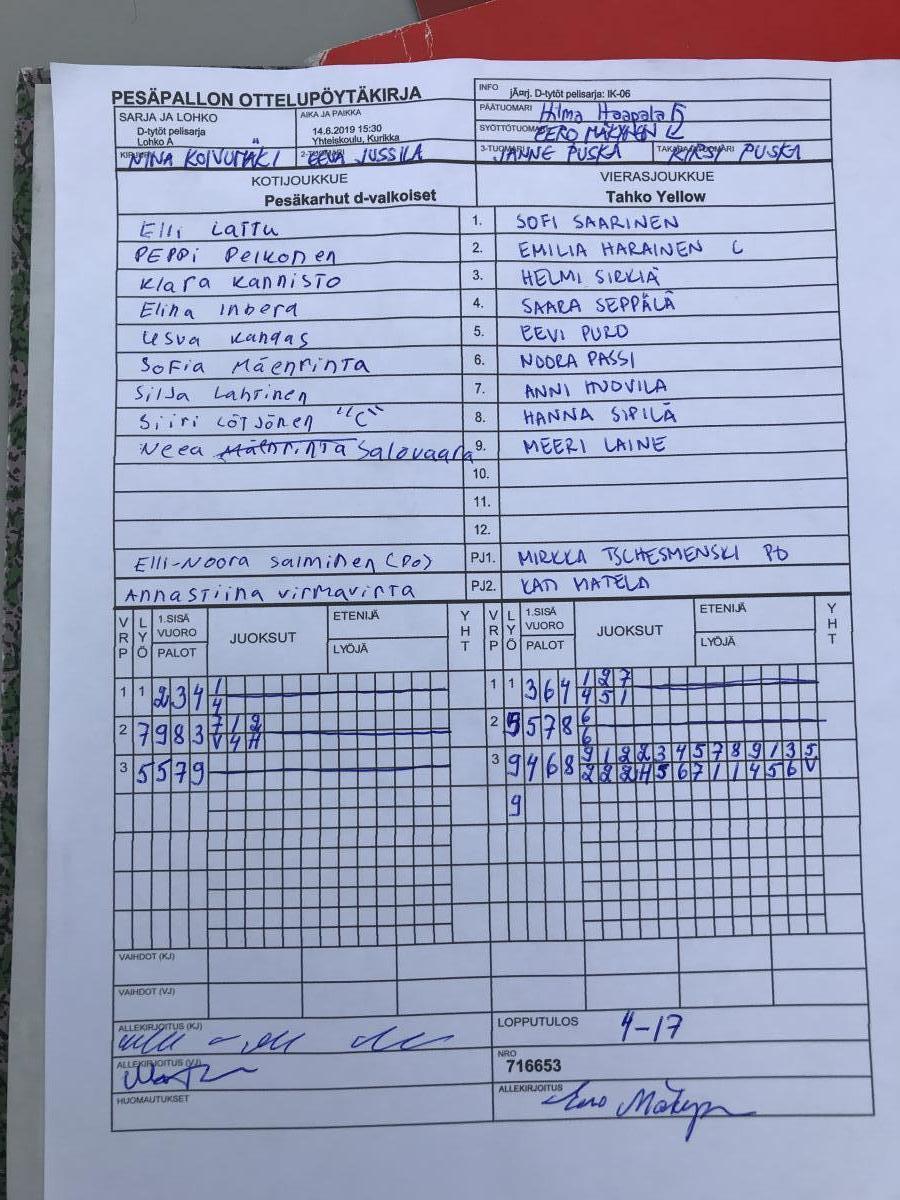 PESÄPALLON OTTELUPÖYTÄKIRJA
INFO jÃ¤rj. D-tytöt pelisarja: IK-06
SARJA JA LOHKO
D-tytöt pelisarja
Lohko A
AIKA JA PAIKKA
14.6.2019 15:30
Yhteiskoulu, Kurikka
PÄÄTUOMARI Hilma Haapala
SYÖTTÖTUOMARI EERO MÄKYNEN
NINA KOIVUMÄKI
2-TUOMARI EEVA JUSSILA
3-TUOMARI JANNE PUSKA
TAKARAJATUOMARI KIRSI PUSKA
KOTIJOUKKUE
Pesäkarhut d-valkoiset
VIERASJOUKKUE
Tahko Yellow
Elli Lattu 1. SOFI SAARINEN
PEPPi Pelkonen 2. EMILIA HARAINEN C
Klara Kannisto 3. HELMI SIRKIÄ
Elina Inberg 4. SAARA SEPPÄLÄ
Usva Kangas 5. EEVI PURO
SoFia Mäenrinta 6. NOORA PASSI
Silja Lahtinen 7. ANNI HUOVILA
Siiri Lötjönen "C" 8. HANNA SIPILÄ
Neea Mäenrinta Salovaara 9. MEERI LAINE
10.
11.
12.
Elli-Noora Salminen (PO) PJ1. MIRKKA TSCHESMENSKI PO
Annastiina Virmavirta PJ2. KATI MATELA
VRP LYÖ 1.SISÄ VUORO PALOT JUOKSUT ETENIJÄ LYÖJÄ YHT VRP LYÖ 1.SISÄ VUORO PALOT JUOKSUT ETENIJÄ LYÖJÄ YHT
1 1 2 3 4 1 1 1 3 6 4 1 2 7
4 4 5 1
2 7 9 8 3 7 1 2 2 5 5 7 8 6
V 4 H 6
3 5 5 7 9 3 9 4 6 8 9 1 2 2 3 4 5 7 8 9 1 3 5
2 2 2 H 5 6 7 1 1 4 5 6 V
9
VAIHDOT (KJ)
VAIHDOT (VJ)
ALLEKIRJOITUS (KJ)
LOPPUTULOS 4-17
ALLEKIRJOITUS (VJ)
NRO
716653
HUOMAUTUKSET
ALLEKIRJOITUS Eero Mäkynen